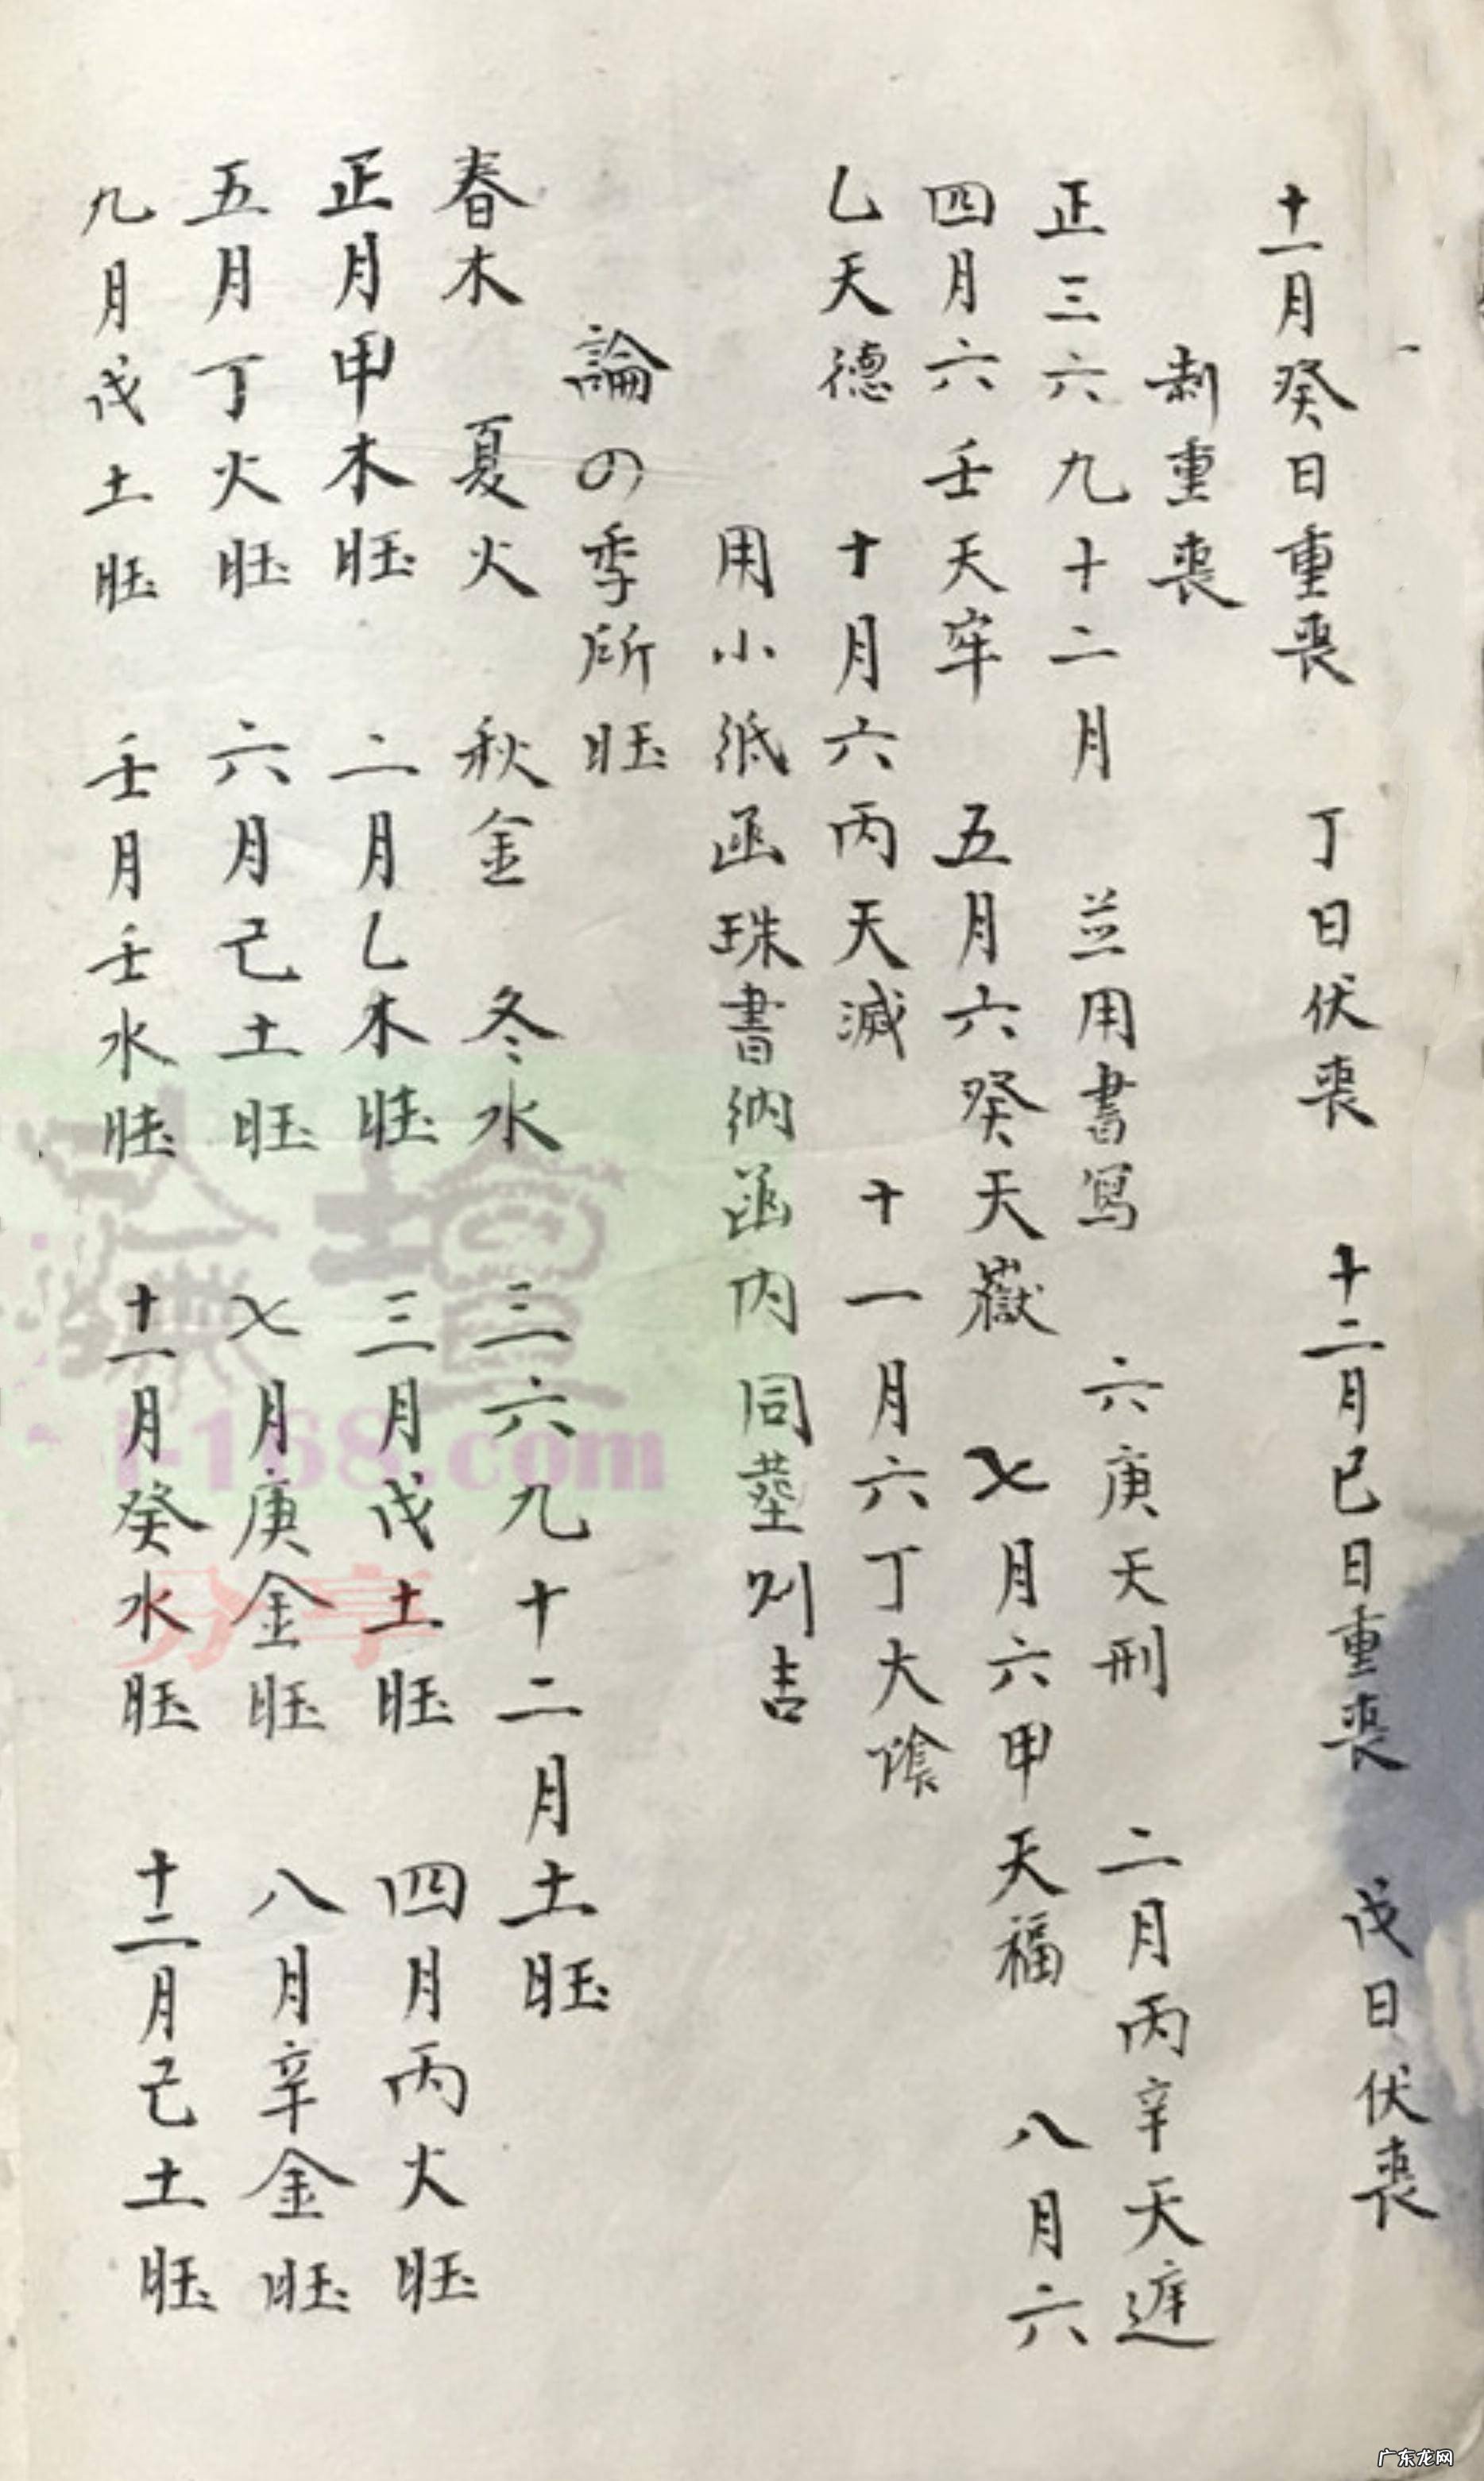 十一月癸日重喪 丁日伏喪 十二月巳日重喪 戊日伏喪
制重喪
正三六九十二月 並用書寫 六庚天刑 二月丙辛天遅
四月六壬天牢 五月六癸天嶽 七月六甲天福 八月六
乙天德 十月六丙天滅 十一月六丁大陰
用小紙函珠書納函内同塟则吉
論の季所旺
春木 夏火 秋金 冬水 三六九十二月土旺
正月甲木旺 二月乙木旺 三月戊土旺 四月丙火旺
五月丁火旺 六月己土旺 七月庚金旺 八月辛金旺
九月戊土旺 壬月壬水旺 十一月癸水旺 十二月己土旺
i-168.com
分享
广东龙网